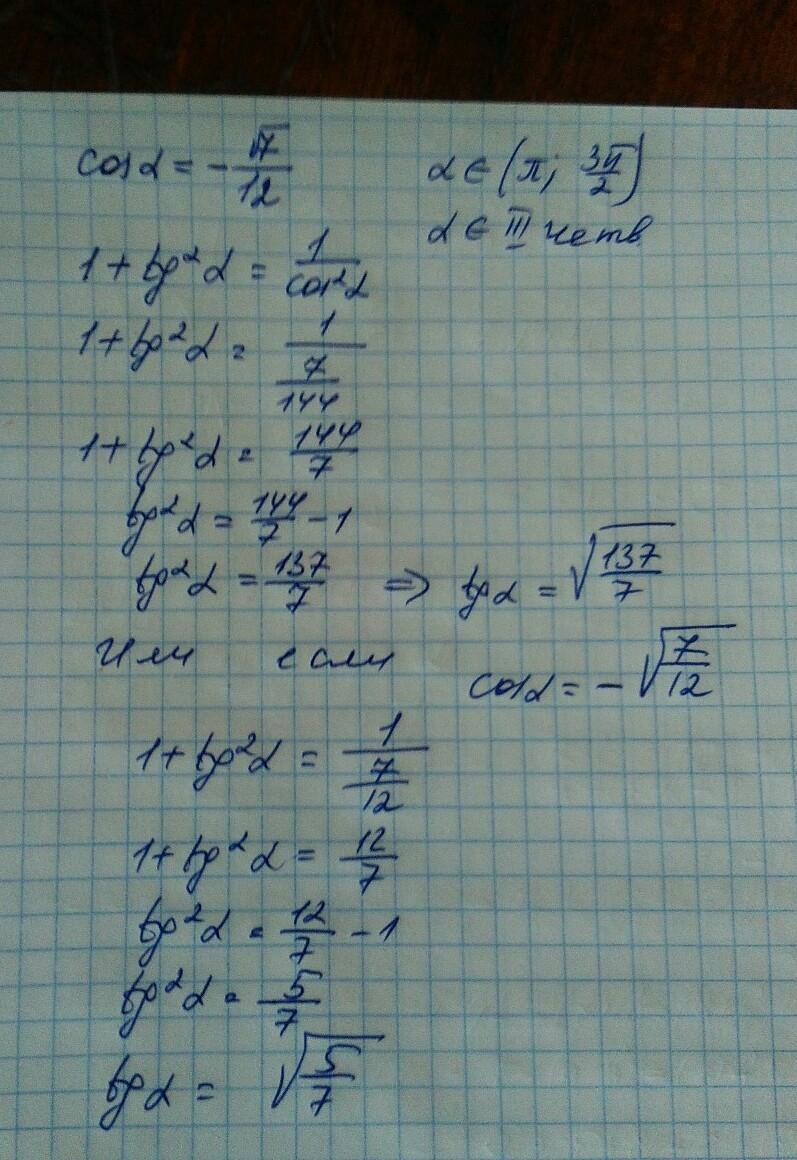 cos α = -√7/12 α ∈ (π; 3π/2)
α ∈ III четв
1 + tg²α = 1/cos²α
1 + tg²α = 1/(7/144)
1 + tg²α = 144/7
tg²α = 144/7 - 1
tg²α = 137/7 ⇒ tg α = √(137/7)
Или если cos α = -√(7/12)
1 + tg²α = 1/(7/12)
1 + tg²α = 12/7
tg²α = 12/7 - 1
tg²α = 5/7
tg α = √(5/7)